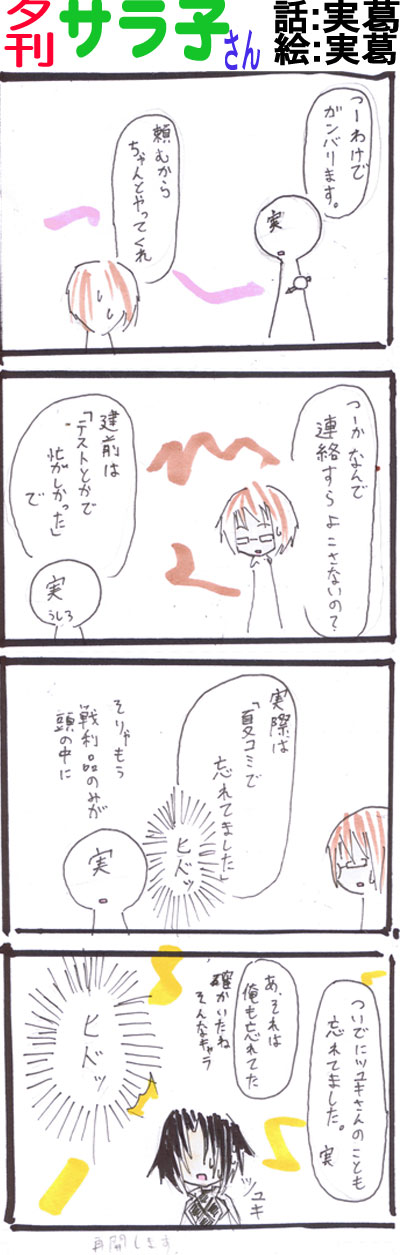 夕刊
サラ子さん
話:実葛
絵:実葛
つーわけで
ガンバリます。
実
頼むから
ちゃんとやってくれ
つーか なんで
連絡すらよこさないの?
建前は
「テストとかで
忙がしかった」
で
実
うしろ
実際は
「夏コミで
忘れてました」
ヒドッ
そりゃもう
戦利品のみが
頭の中に
実
ついでにツユキさんのことも
忘れてました。
実
あ、それは
俺も忘れてた
確かいたね
そんなキャラ
ヒドッ
ツユキ
再開します。